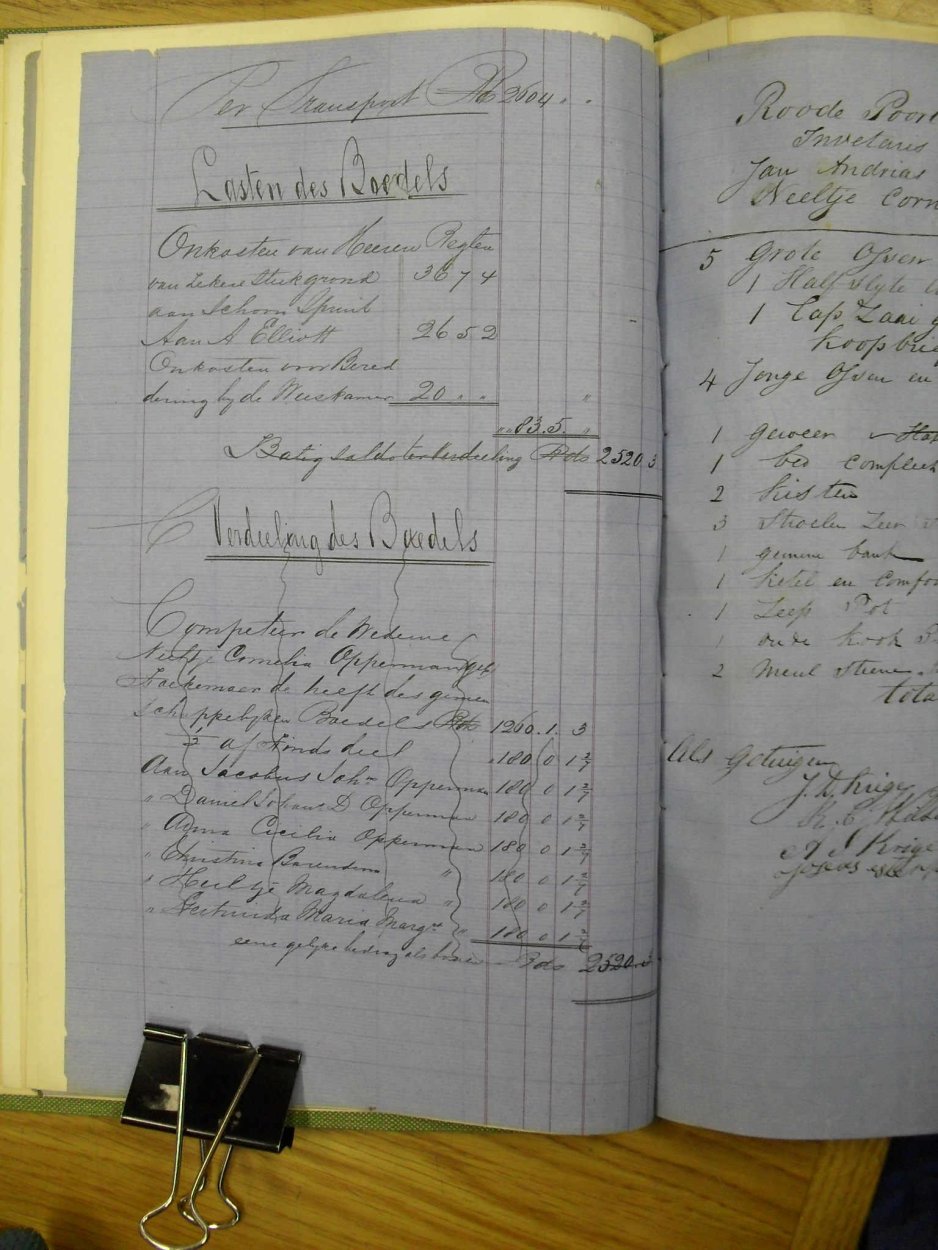 Per Transport Rds 2604 " "
Lasten des Boedels
Onkosten van Heeren Regten
van zekere stuk grond 36 7 4
aan Schoon Spruit
Aan A Elliott 26 5 2
Onkosten voor Bered
dering by de Weeskamer 20 " " "
" " 83. 5. "
Batig saldo ter Verdeeling Rds 2520. 3
Verdeeling des Boedels
Competeer de Weduwe
Neeltje Cornelia Opperman geb
de helft des gemeen
schappelyken Boedels Rds 1260. 1. 3
af Kinds deel " 180 0 1 2/7
Aan Jacobus Joh.n Opperman 180 0 1 2/7
" Daniel Johans D Opperman 180 0 1 2/7
" Anna Cecilia Opperman 180 0 1 2/7
" Christina Barendina " 180 0 1 2/7
" Heiltje Magdalena " 180 0 1 2/7
" Gertruida Maria Marg.t " 180 0 1 2/7
eene gelyke bedrag als boven Rds 2520. 3
Roode Poort
Invetaris
Jan Andrias
Neeltje Corn
5 Grote Ossen
1 Half style
1 Cap Zaai
koopbrie
4 Jonge Ossen en
1 geweer
1 bed compleet
2 kisten
3 Stoelen Leer
1 gemene bank
1 ketel en Comfoo
1 Zeep Pot
1 oude kook
2 Meul Steene
tota
Als Getuigen
J. D. Krige
A J Krige